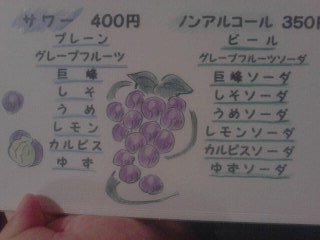 サワー 400円
プレーン
グレープフルーツ
巨峰
しそ
うめ
レモン
カルピス
ゆず
ノンアルコール 350円
ビール
グレープフルーツソーダ
巨峰ソーダ
しそソーダ
うめソーダ
レモンソーダ
カルピスソーダ
ゆずソーダ